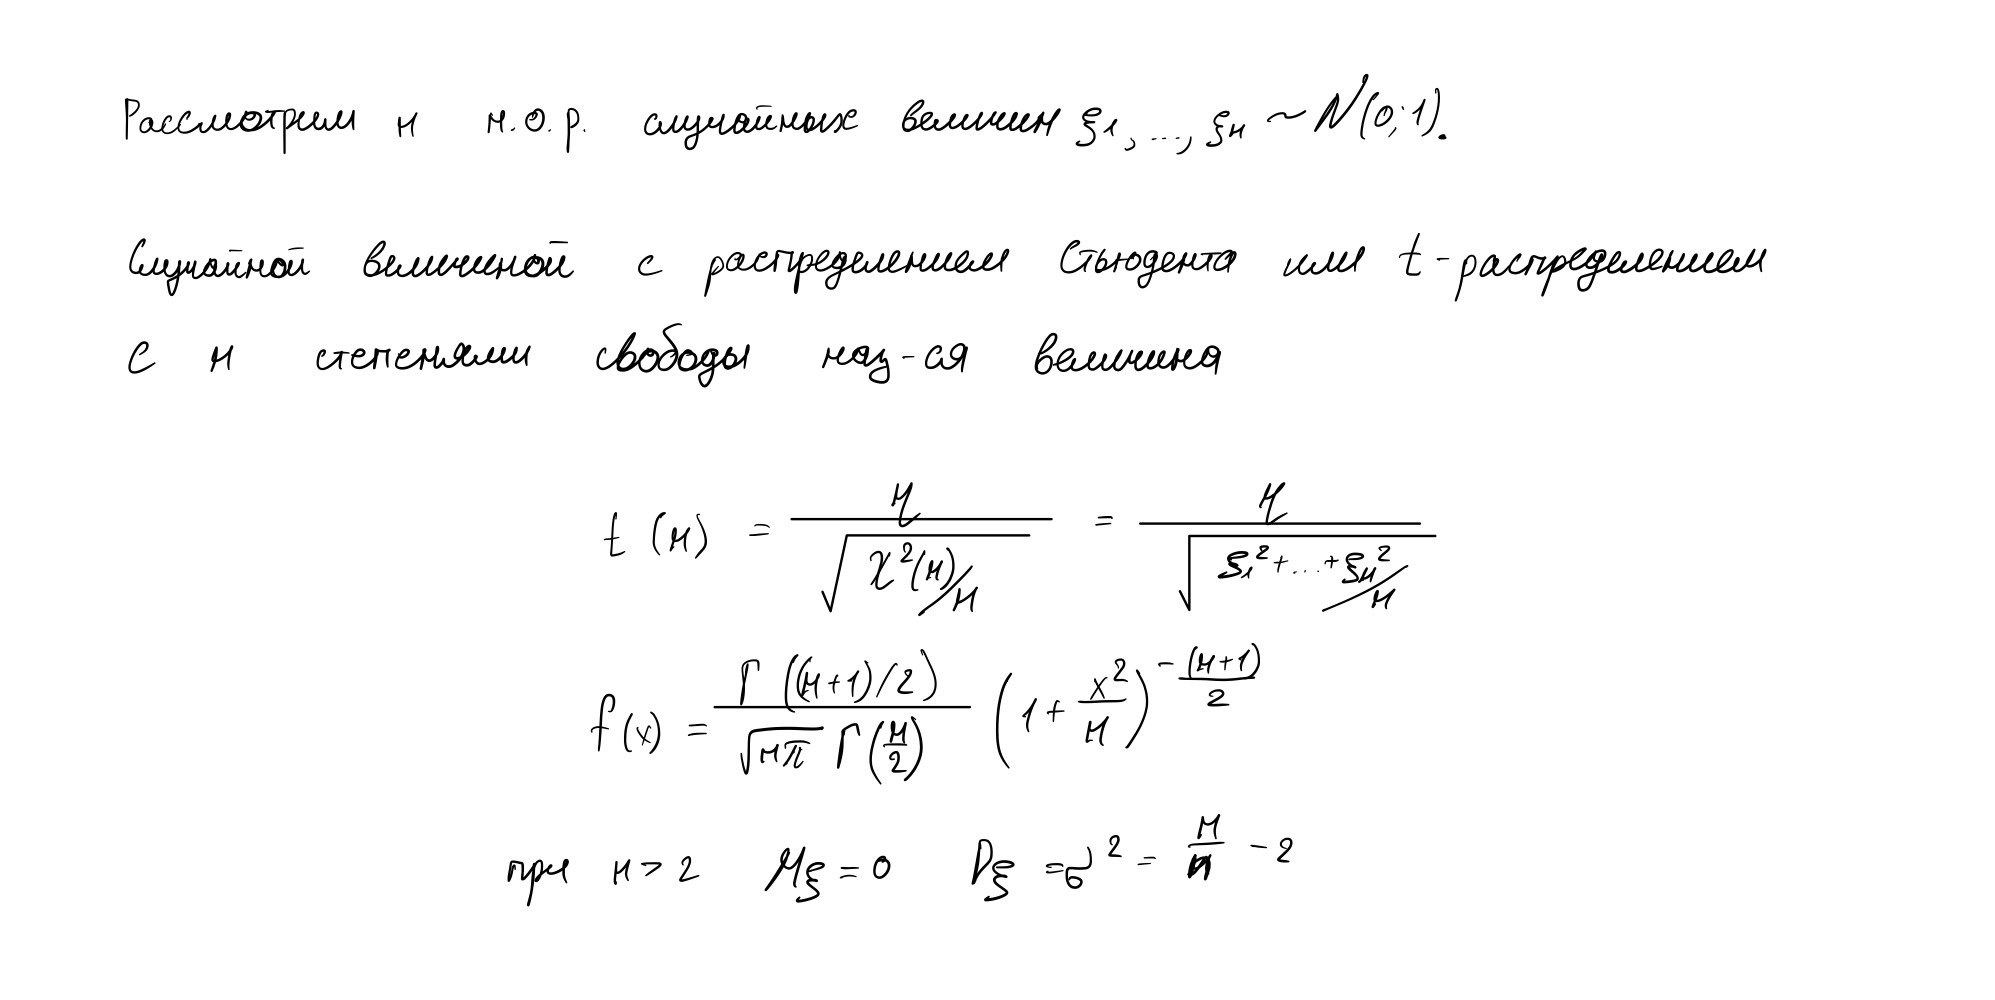 Рассмотрим n н.о.р. случайных величин ξ₁, ..., ξₙ ~ N(0; 1).
Случайной величиной с распределением Стьюдента или t-распределением
с n степенями свободы наз-ся величина
t(n) = η / √(χ²(n)/n) = η / √(ξ₁² + ... + ξₙ²/n)
f(x) = Γ((n+1)/2) / (√(nπ) Γ(n/2)) (1 + x²/n)^(-(n+1)/2)
при n > 2 Mξ = 0 Dξ = σ² = n/n - 2